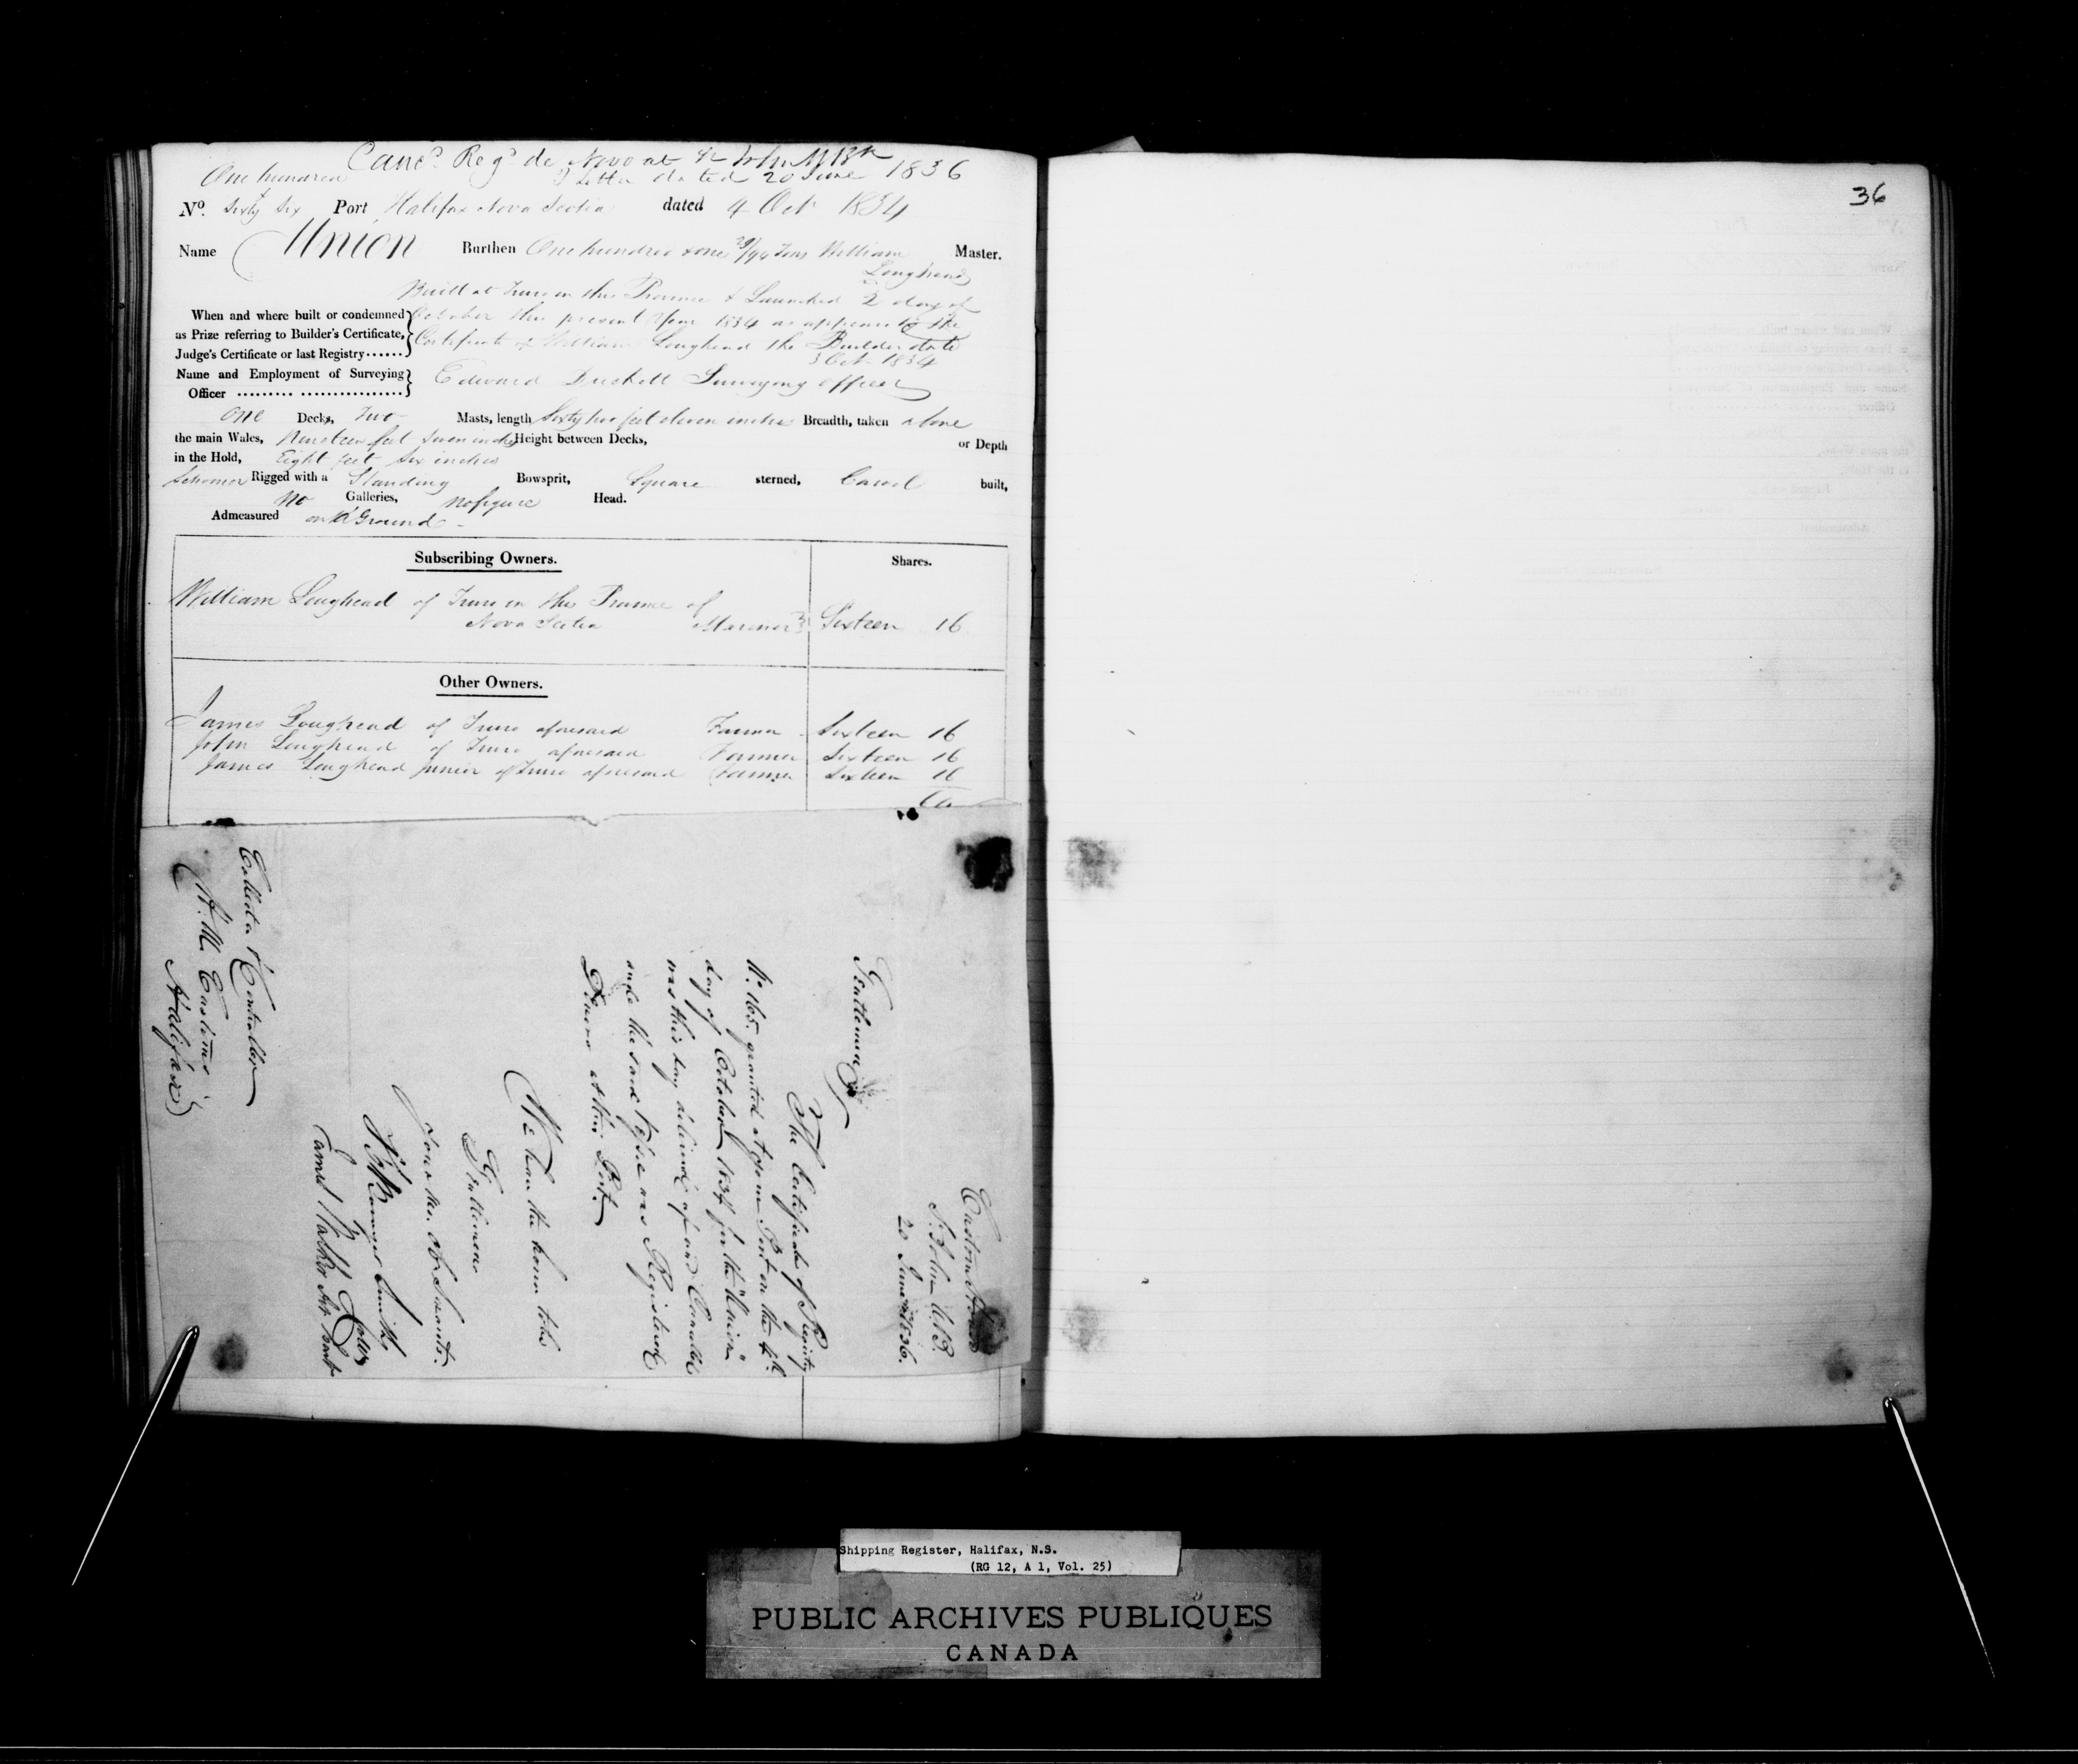 Canc^d Reg^d de Novo at St John N Bk
One hundred
P Letter dated 20 June 1836
No. Sixty Six Port Halifax Nova Scotia dated 4 Oct 1834
Name Union Burthen One hundred & one 29/94 Tons William Master.
Loughead
Built at Truro in this Province & Launched 2 day of
When and where built or condemned October this present Year 1834 as appears by the
as Prize referring to Builder's Certificate, Certificate of William Loughead the Builder date
Judge's Certificate or last Registry...... 3 Oct 1834
Name and Employment of Surveying
Officer Edward Duckett Surveying officer
One Decks, Two Masts, length Sixty two feet eleven inches Breadth, taken above
the main Wales, Nineteen feet seven inches Height between Decks, or Depth
in the Hold, Eight feet six inches
Schooner Rigged with a Standing Bowsprit, Square sterned, Carvel built,
No Galleries, No figure Head.
Admeasured on the Ground
Subscribing Owners. Shares.
William Loughead of Truro in the Province of
Nova Scotia Mariner Sixteen 16
Other Owners.
James Loughead of Truro aforesaid Farmer Sixteen 16
John Loughead of Truro aforesaid Farmer Sixteen 16
James Loughead Junior of Truro aforesaid Farmer Sixteen 16
Custom House
St. John N.B.
20 June 1836.
Gentlemen
The Certificate of Registry
No. 165. granted at your Port on the 4th
day of October 1834 for the "Union"
was this day delivered up and Cancelled
and the said Vessel was Registered
Denovo at this Port.
We have the honor to be
Gentlemen
Your Mo. Ob. Servants.
Smith
Collector & Controller
H.M. Customs
Halifax
36
Shipping Register, Halifax, N.S.
(RG 12, A 1, Vol. 25)
PUBLIC ARCHIVES PUBLIQUES
CANADA